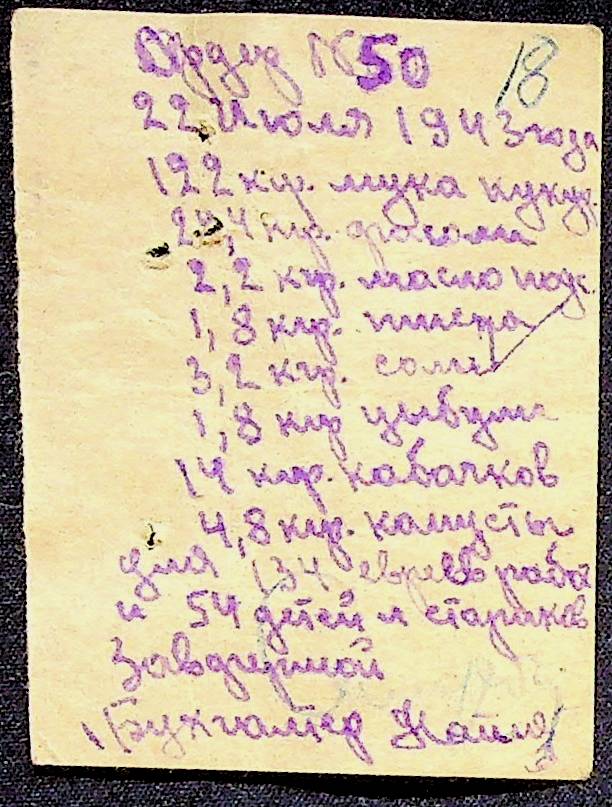 Ордер № 50 18
22 Июля 1943 года
122 кгр. мука кукур.
24,4 кгр. фасоли
2,2 кгр. масло подс.
1,8 кгр. пшена
3,2 кгр. соли
1,8 кгр цибули
14 кгр. кабачков
4,8 кгр. капусты
для 134 евреев рабо
и 54 детей и стариков
Завфермой
Бухгалтер